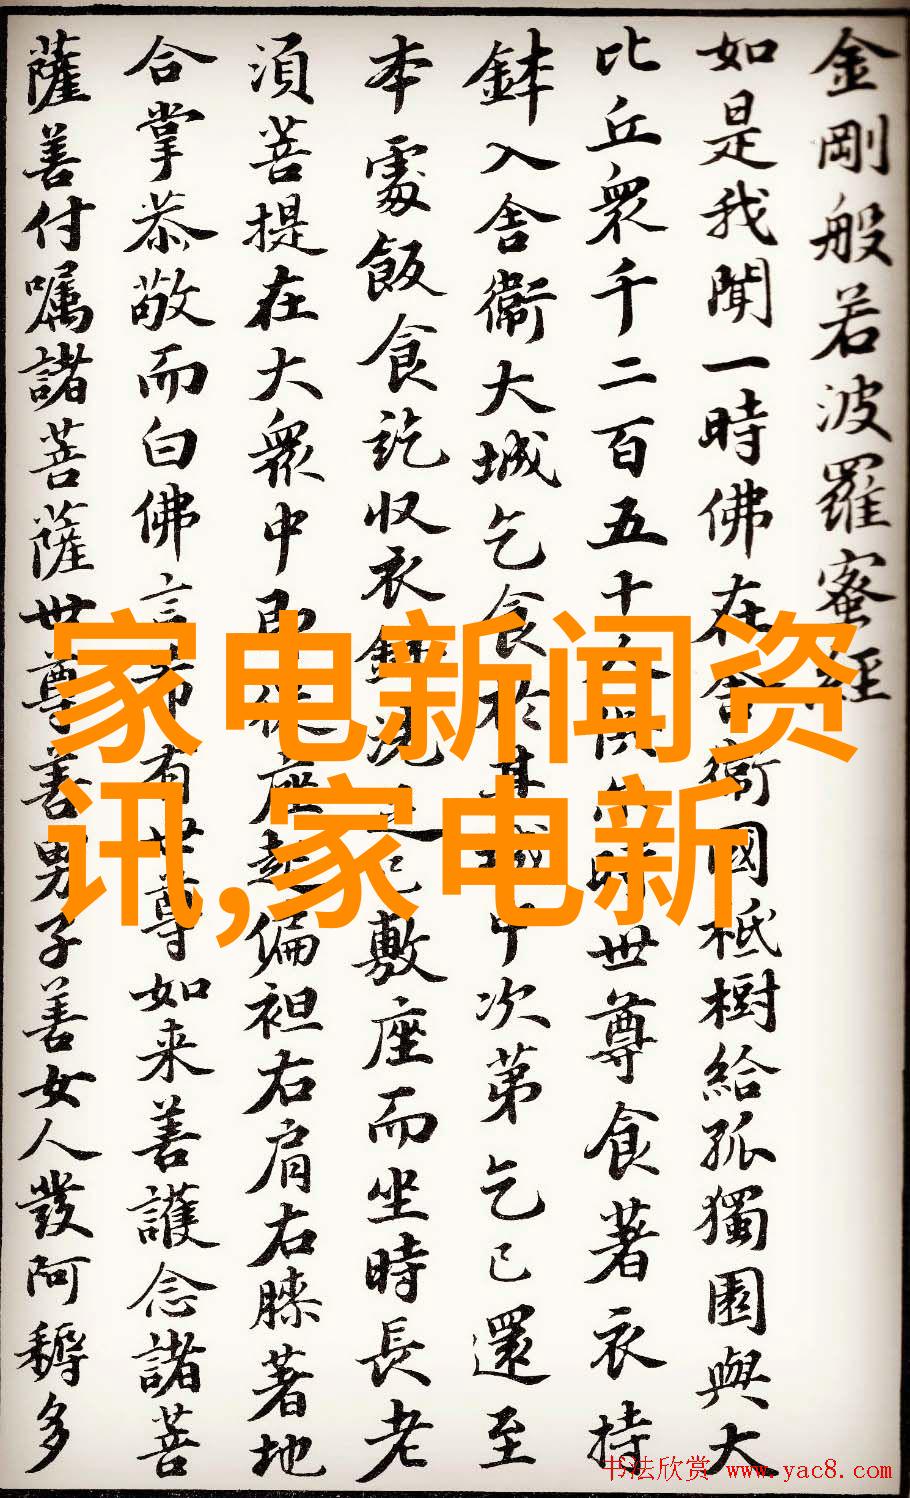 金剛般若波羅蜜經
如是我聞一時佛在舍衛國祇樹給孤獨園與大
比丘衆千二百五十人俱尒時世尊食著衣持
鉢入舍衛大城乞食於其城中次第乞已還至
本處飯食訖收衣鉢洗足已敷座而坐時長老
須菩提在大衆中即從座起偏袒右肩右膝著地
合掌恭敬而白佛言希有世尊如来善護念諸菩
薩善付嘱諸菩薩世尊善男子善女人發阿耨多
家电新闻资
讯,家电新
书法欣赏 www.yac8.com